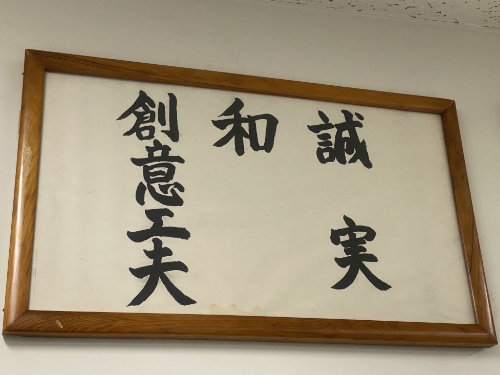 誠実
和
創意工夫